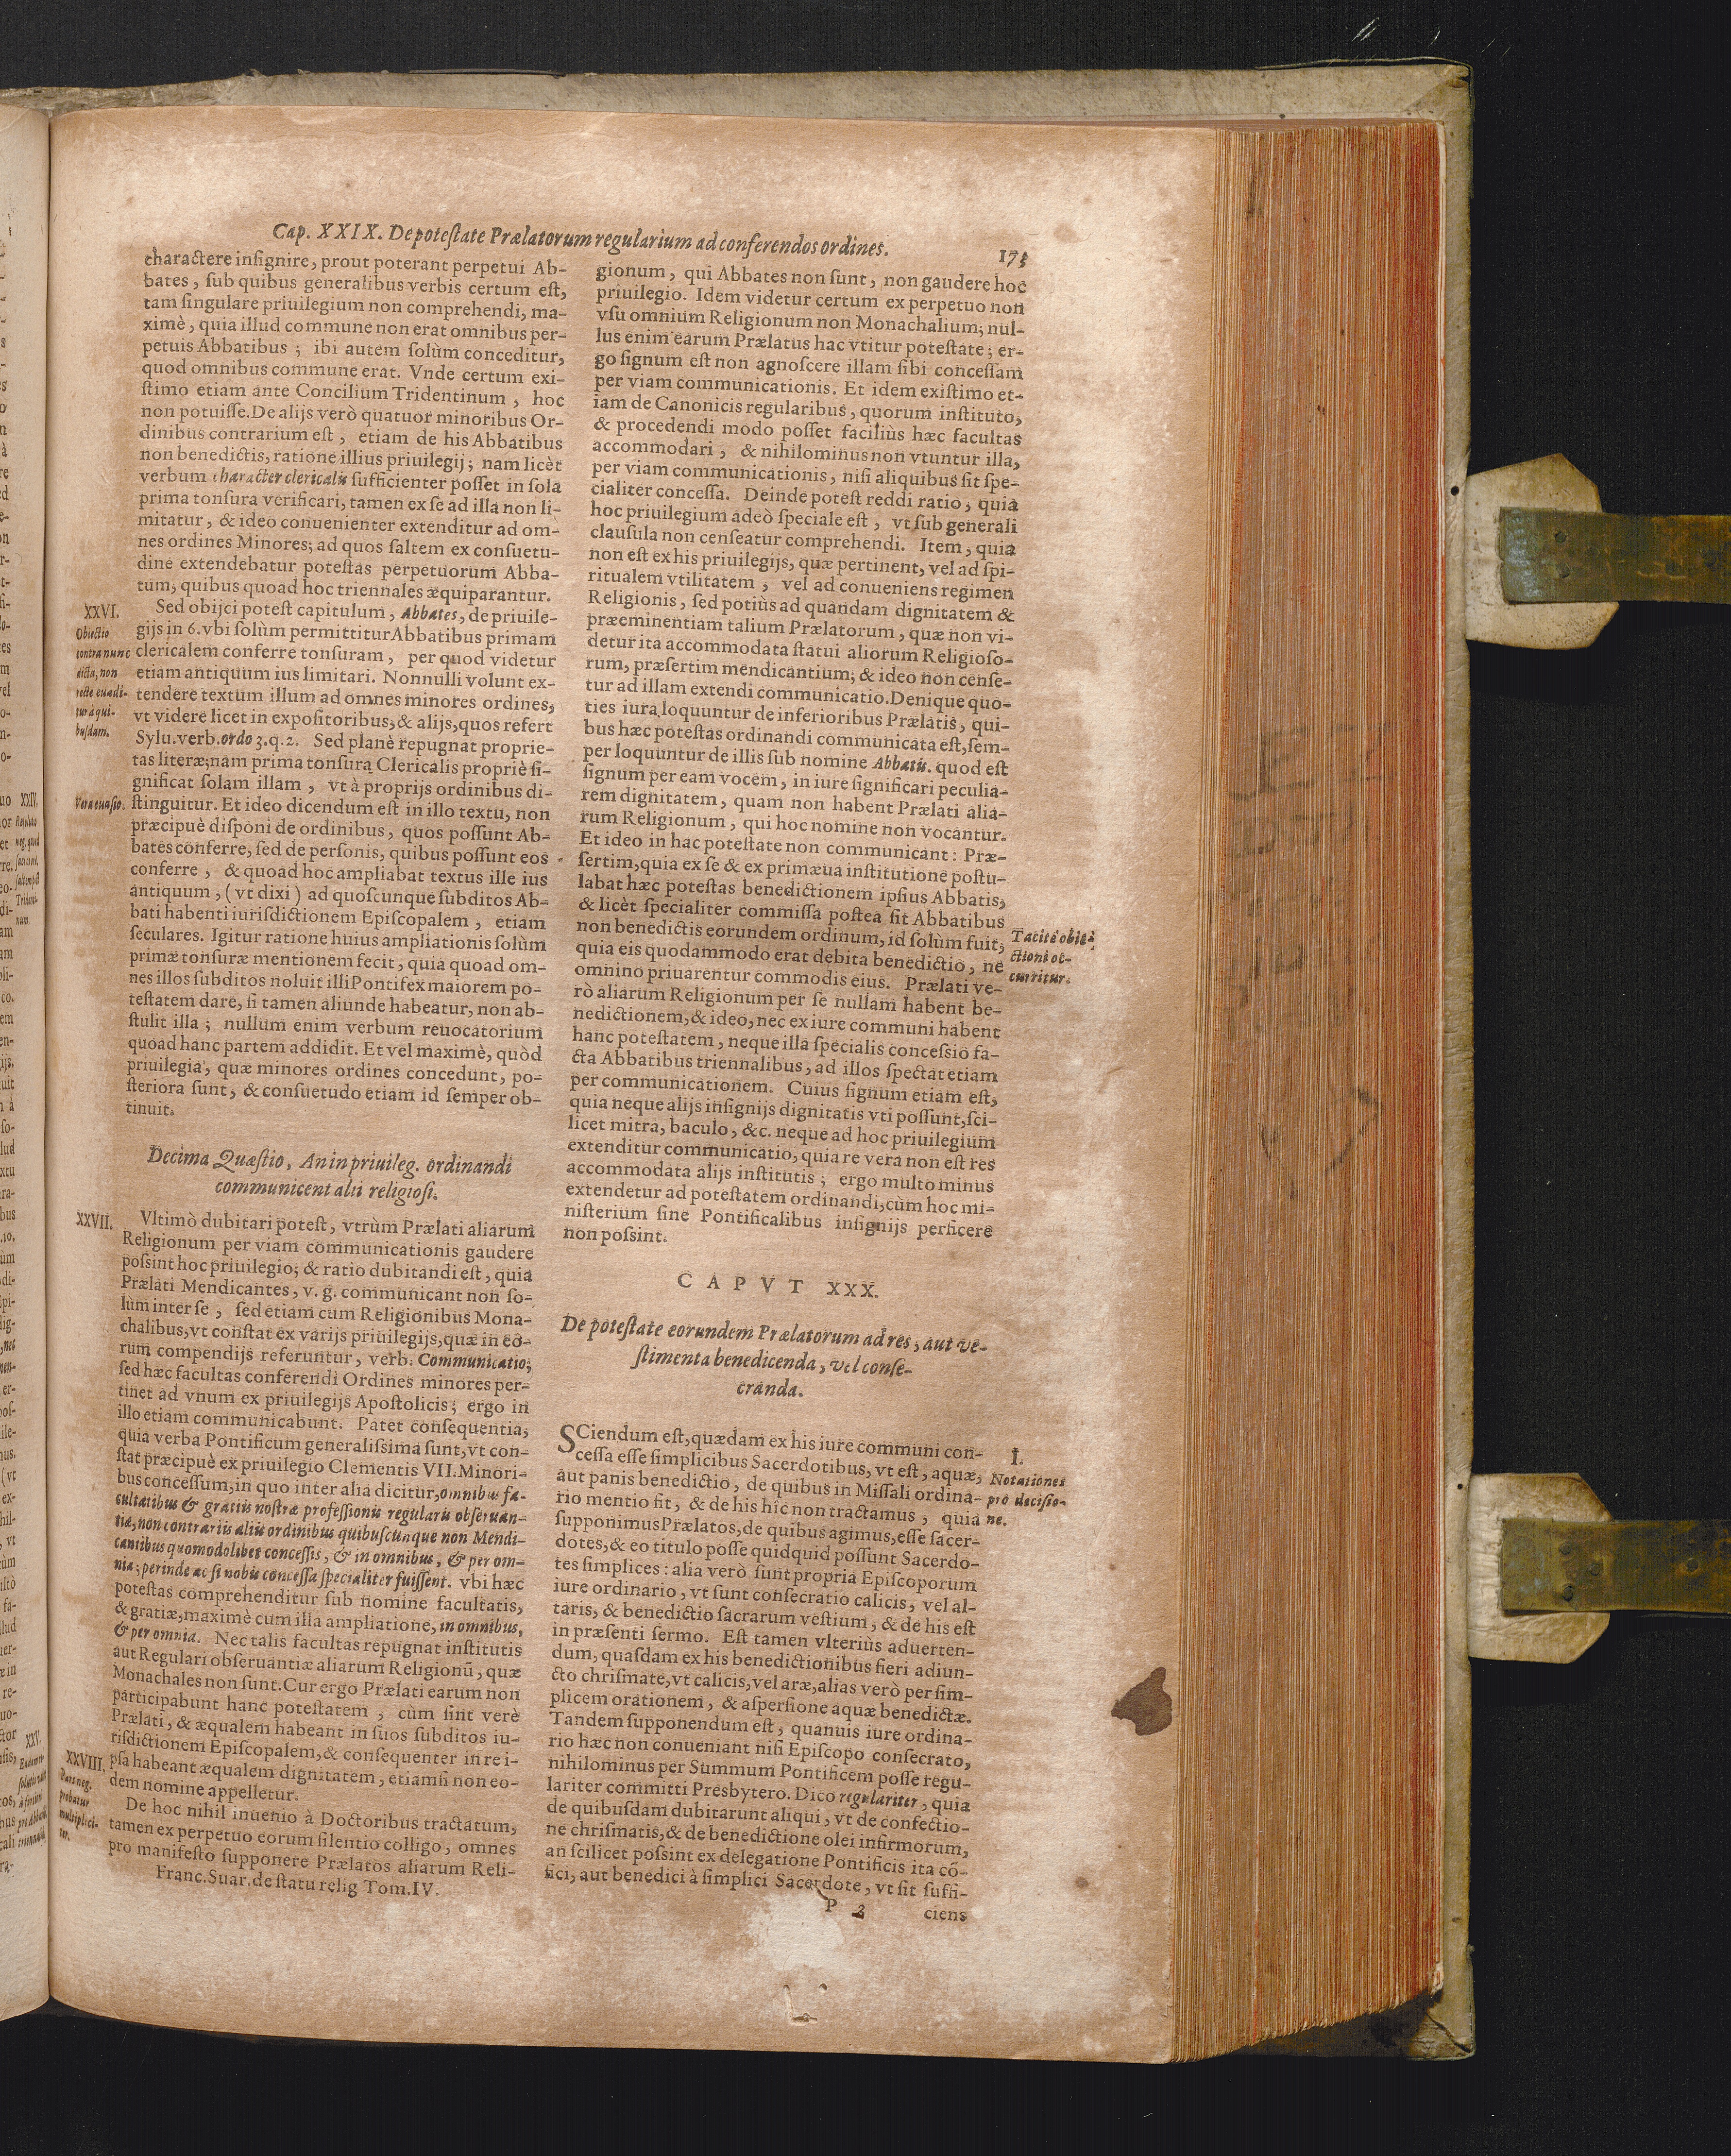 Cap. XXIX. De poteſtate Prælatorum regularium ad conferendos ordines.
175
charactere inſignire, prout poterant perpetui Ab-
bates, ſub quibus generalibus verbis certum eſt,
tam ſingulare priuilegium non comprehendi, ma-
ximè, quia illud commune non erat omnibus per-
petuis Abbatibus; ibi autem ſolùm conceditur,
quod omnibus commune erat. Vnde certum exi-
ſtimo etiam ante Concilium Tridentinum, hoc
non potuiſſe. De alijs verò quatuor minoribus Or-
dinibus contrarium eſt, etiam de his Abbatibus
non benedictis, ratione illius priuilegij; nam licèt
verbum character clericalis ſufficienter poſſet in ſola
prima tonſura verificari, tamen ex ſe ad illa non li-
mitatur, & ideo conuenienter extenditur ad om-
nes ordines Minores; ad quos ſaltem ex conſuetu-
dine extendebatur poteſtas perpetuorum Abba-
tum, quibus quoad hoc triennales æquiparantur.
XXVI.
Obiectio
contra nunc
dicta, non
recte euadi-
tur à qui-
buſdam.
Sed obijci poteſt capitulum, Abbates, de priuile-
gijs in 6. vbi ſolùm permittitur Abbatibus primam
clericalem conferre tonſuram, per quod videtur
etiam antiquum ius limitari. Nonnulli volunt ex-
tendere textum illum ad omnes minores ordines,
vt videre licet in expoſitoribus, & alijs, quos refert
Sylu. verb. ordo 3. q. 2. Sed planè repugnat proprie-
tas literæ; nam prima tonſura Clericalis propriè ſi-
gnificat ſolam illam, vt à proprijs ordinibus di-
Vera euaſio.
ſtinguitur. Et ideo dicendum eſt in illo textu, non
præcipuè diſponi de ordinibus, quos poſſunt Ab-
bates conferre, ſed de perſonis, quibus poſſunt eos
conferre, & quoad hoc ampliabat textus ille ius
antiquum, (vt dixi) ad quoſcunque ſubditos Ab-
bati habenti iuriſdictionem Epiſcopalem, etiam
ſeculares. Igitur ratione huius ampliationis ſolùm
primæ tonſuræ mentionem fecit, quia quoad om-
nes illos ſubditos noluit illi Pontifex maiorem po-
teſtatem dare, ſi tamen aliunde habeatur, non ab-
ſtulit illa; nullum enim verbum reuocatorium
quoad hanc partem addidit. Et vel maximè, quòd
priuilegia, quæ minores ordines concedunt, po-
ſteriora ſunt, & conſuetudo etiam id ſemper ob-
tinuit.
Decima Quæſtio, An in priuileg. ordinandi
communicent alii religioſi.
XXVII.
Vltimò dubitari poteſt, vtrùm Prælati aliarum
Religionum per viam communicationis gaudere
poſsint hoc priuilegio; & ratio dubitandi eſt, quia
Prælati Mendicantes, v. g. communicant non ſo-
lùm inter ſe, ſed etiam cum Religionibus Mona-
chalibus, vt conſtat ex varijs priuilegijs, quæ in eo-
rum compendijs referuntur, verb. Communicatio;
ſed hæc facultas conferendi Ordines minores per-
tinet ad vnum ex priuilegijs Apoſtolicis; ergo in
illo etiam communicabunt. Patet conſequentia,
quia verba Pontificum generaliſsima ſunt, vt con-
ſtat præcipuè ex priuilegio Clementis VII. Minori-
bus conceſſum, in quo inter alia dicitur, omnibus fa-
cultatibus & gratiis noſtræ profeſſionis regularis obſeruan-
tiæ, non contrariis aliis ordinibus quibuſcunque non Mendi-
cantibus quomodolibet conceſſis, & in omnibus, & per om-
nia; perinde ac ſi nobis conceſſa ſpecialiter fuiſſent. vbi hæc
poteſtas comprehenditur ſub nomine facultatis,
& gratiæ, maximè cum illa ampliatione, in omnibus,
& per omnia. Nec talis facultas repugnat inſtitutis
aut Regulari obſeruantiæ aliarum Religionũ, quæ
Monachales non ſunt. Cur ergo Prælati earum non
participabunt hanc poteſtatem, cùm ſint verè
Prælati, & æqualem habeant in ſuos ſubditos iu-
riſdictionem Epiſcopalem, & conſequenter in re i-
pſa habeant æqualem dignitatem, etiamſi non eo-
dem nomine appelletur.
XXVIII.
Pars neg.
probatur
multiplici-
ter.
De hoc nihil inuenio à Doctoribus tractatum,
tamen ex perpetuo eorum ſilentio colligo, omnes
pro manifeſto ſupponere Prælatos aliarum Reli-
Franc. Suar. de ſtatu relig Tom. IV.
gionum, qui Abbates non ſunt, non gaudere hoc
priuilegio. Idem videtur certum ex perpetuo non
vſu omnium Religionum non Monachalium; nul-
lus enim earum Prælatus hac vtitur poteſtate; er-
go ſignum eſt non agnoſcere illam ſibi conceſſam
per viam communicationis. Et idem exiſtimo et-
iam de Canonicis regularibus, quorum inſtituto,
& procedendi modo poſſet faciliùs hæc facultas
accommodari, & nihilominus non vtuntur illa,
per viam communicationis, niſi aliquibus ſit ſpe-
cialiter conceſſa. Deinde poteſt reddi ratio, quia
hoc priuilegium adeò ſpeciale eſt, vt ſub generali
clauſula non cenſeatur comprehendi. Item, quia
non eſt ex his priuilegijs, quæ pertinent, vel ad ſpi-
ritualem vtilitatem, vel ad conueniens regimen
Religionis, ſed potiùs ad quandam dignitatem &
præeminentiam talium Prælatorum, quæ non vi-
detur ita accommodata ſtatui aliorum Religioſo-
rum, præſertim mendicantium; & ideo non cenſe-
tur ad illam extendi communicatio. Denique quo-
ties iura loquuntur de inferioribus Prælatis, qui-
bus hæc poteſtas ordinandi communicata eſt, ſem-
per loquuntur de illis ſub nomine Abbatis. quod eſt
ſignum per eam vocem, in iure ſignificari peculia-
rem dignitatem, quam non habent Prælati alia-
rum Religionum, qui hoc nomine non vocantur.
Et ideo in hac poteſtate non communicant: Præ-
ſertim, quia ex ſe & ex primæua inſtitutione poſtu-
labat hæc poteſtas benedictionem ipſius Abbatis,
& licèt ſpecialiter commiſſa poſtea ſit Abbatibus
non benedictis eorundem ordinum, id ſolùm fuit,
quia eis quodammodo erat debita benedictio, ne
omnino priuarentur commodis eius. Prælati ve-
Tacitè obie-
ctioni oc-
curritur.
rò aliarum Religionum per ſe nullam habent be-
nedictionem, & ideo, nec ex iure communi habent
hanc poteſtatem, neque illa ſpecialis conceſsio fa-
cta Abbatibus triennalibus, ad illos ſpectat etiam
per communicationem. Cuius ſignum etiam eſt,
quia neque alijs inſignijs dignitatis vti poſſunt, ſci-
licet mitra, baculo, &c. neque ad hoc priuilegium
extenditur communicatio, quia re vera non eſt res
accommodata alijs inſtitutis; ergo multo minus
extendetur ad poteſtatem ordinandi, cùm hoc mi-
niſterium ſine Pontificalibus inſignijs perficere
non poſsint.
CAPVT XXX.
De poteſtate eorundem Prælatorum ad res, aut ve-
ſtimenta benedicenda, vel conſe-
cranda.
I.
Notationes
pro deciſio-
ne.
SCiendum eſt, quædam ex his iure communi con-
ceſſa eſſe ſimplicibus Sacerdotibus, vt eſt, aquæ,
aut panis benedictio, de quibus in Miſſali ordina-
rio mentio fit, & de his hîc non tractamus, quia
ſupponimus Prælatos, de quibus agimus, eſſe ſacer-
dotes, & eo titulo poſſe quidquid poſſunt Sacerdo-
tes ſimplices: alia verò ſunt propria Epiſcoporum
iure ordinario, vt ſunt conſecratio calicis, vel al-
taris, & benedictio ſacrarum veſtium, & de his eſt
in præſenti ſermo. Eſt tamen vlteriùs aduerten-
dum, quaſdam ex his benedictionibus fieri adiun-
cto chriſmate, vt calicis, vel aræ, alias verò per ſim-
plicem orationem, & aſperſione aquæ benedictæ.
Tandem ſupponendum eſt, quanuis iure ordina-
rio hæc non conueniant niſi Epiſcopo conſecrato,
nihilominus per Summum Pontificem poſſe regu-
lariter committi Presbytero. Dico regulariter, quia
de quibuſdam dubitarunt aliqui, vt de confectio-
ne chriſmatis, & de benedictione olei infirmorum,
an ſcilicet poſsint ex delegatione Pontificis ita cõ-
fici, aut benedici à ſimplici Sacerdote, vt ſit ſuffi-
P 2
ciens